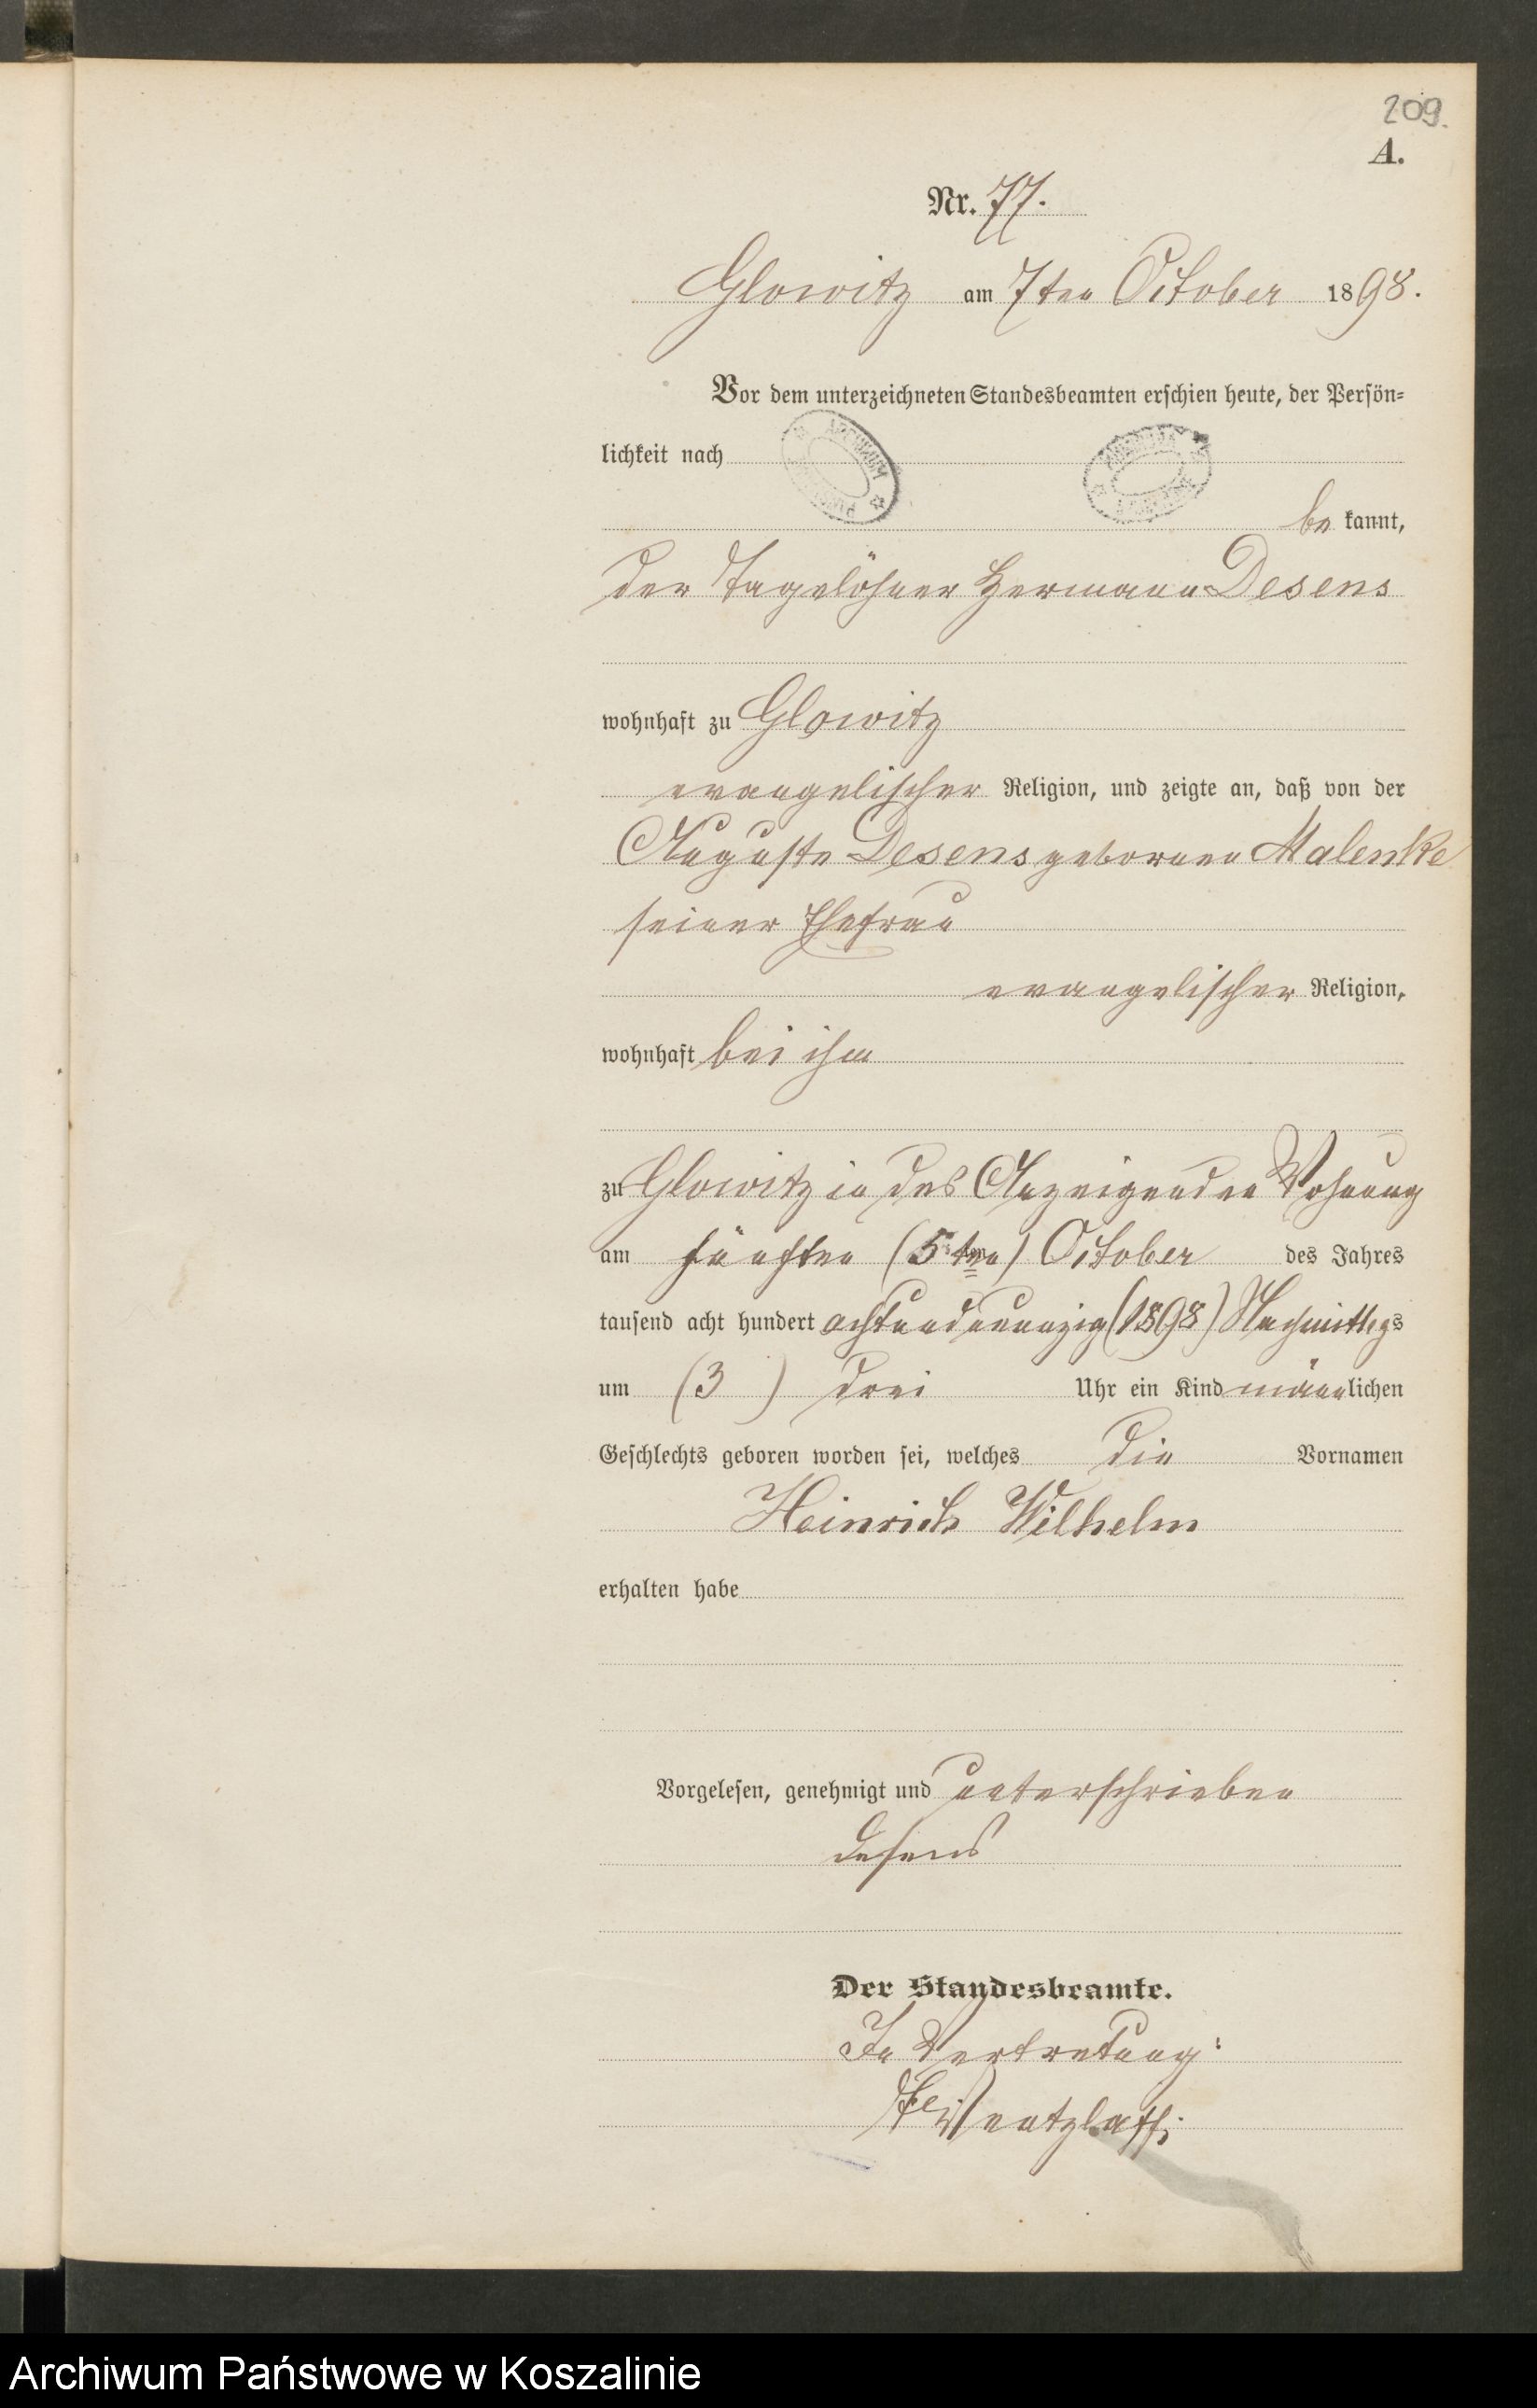 209.
A.
Nr. 77.
Glowitz am 7ten October 1898.
Vor dem unterzeichneten Standesbeamten erschien heute, der Persön-
lichkeit nach
ARCHIWUM
be kannt,
der Tagelöhner Hermann Desens
wohnhaft zu Glowitz
evangelischer Religion, und zeigte an, daß von der
Auguste Desens geborenen Malenke
seiner Ehefrau
evangelischer Religion,
wohnhaft bei ihm
zu Glowitz in des Anzeigenden Wohnung
am fünften (5ten) October des Jahres
tausend acht hundert achtundneunzig (1898) Nachmittags
um (3) drei Uhr ein Kind männlichen
Geschlechts geboren worden sei, welches die Vornamen
Heinrich Wilhelm
erhalten habe
Vorgelesen, genehmigt und unterschrieben
Desens
Der Standesbeamte.
In Vertretung:
Wentzlaff.
Archiwum Państwowe w Koszalinie